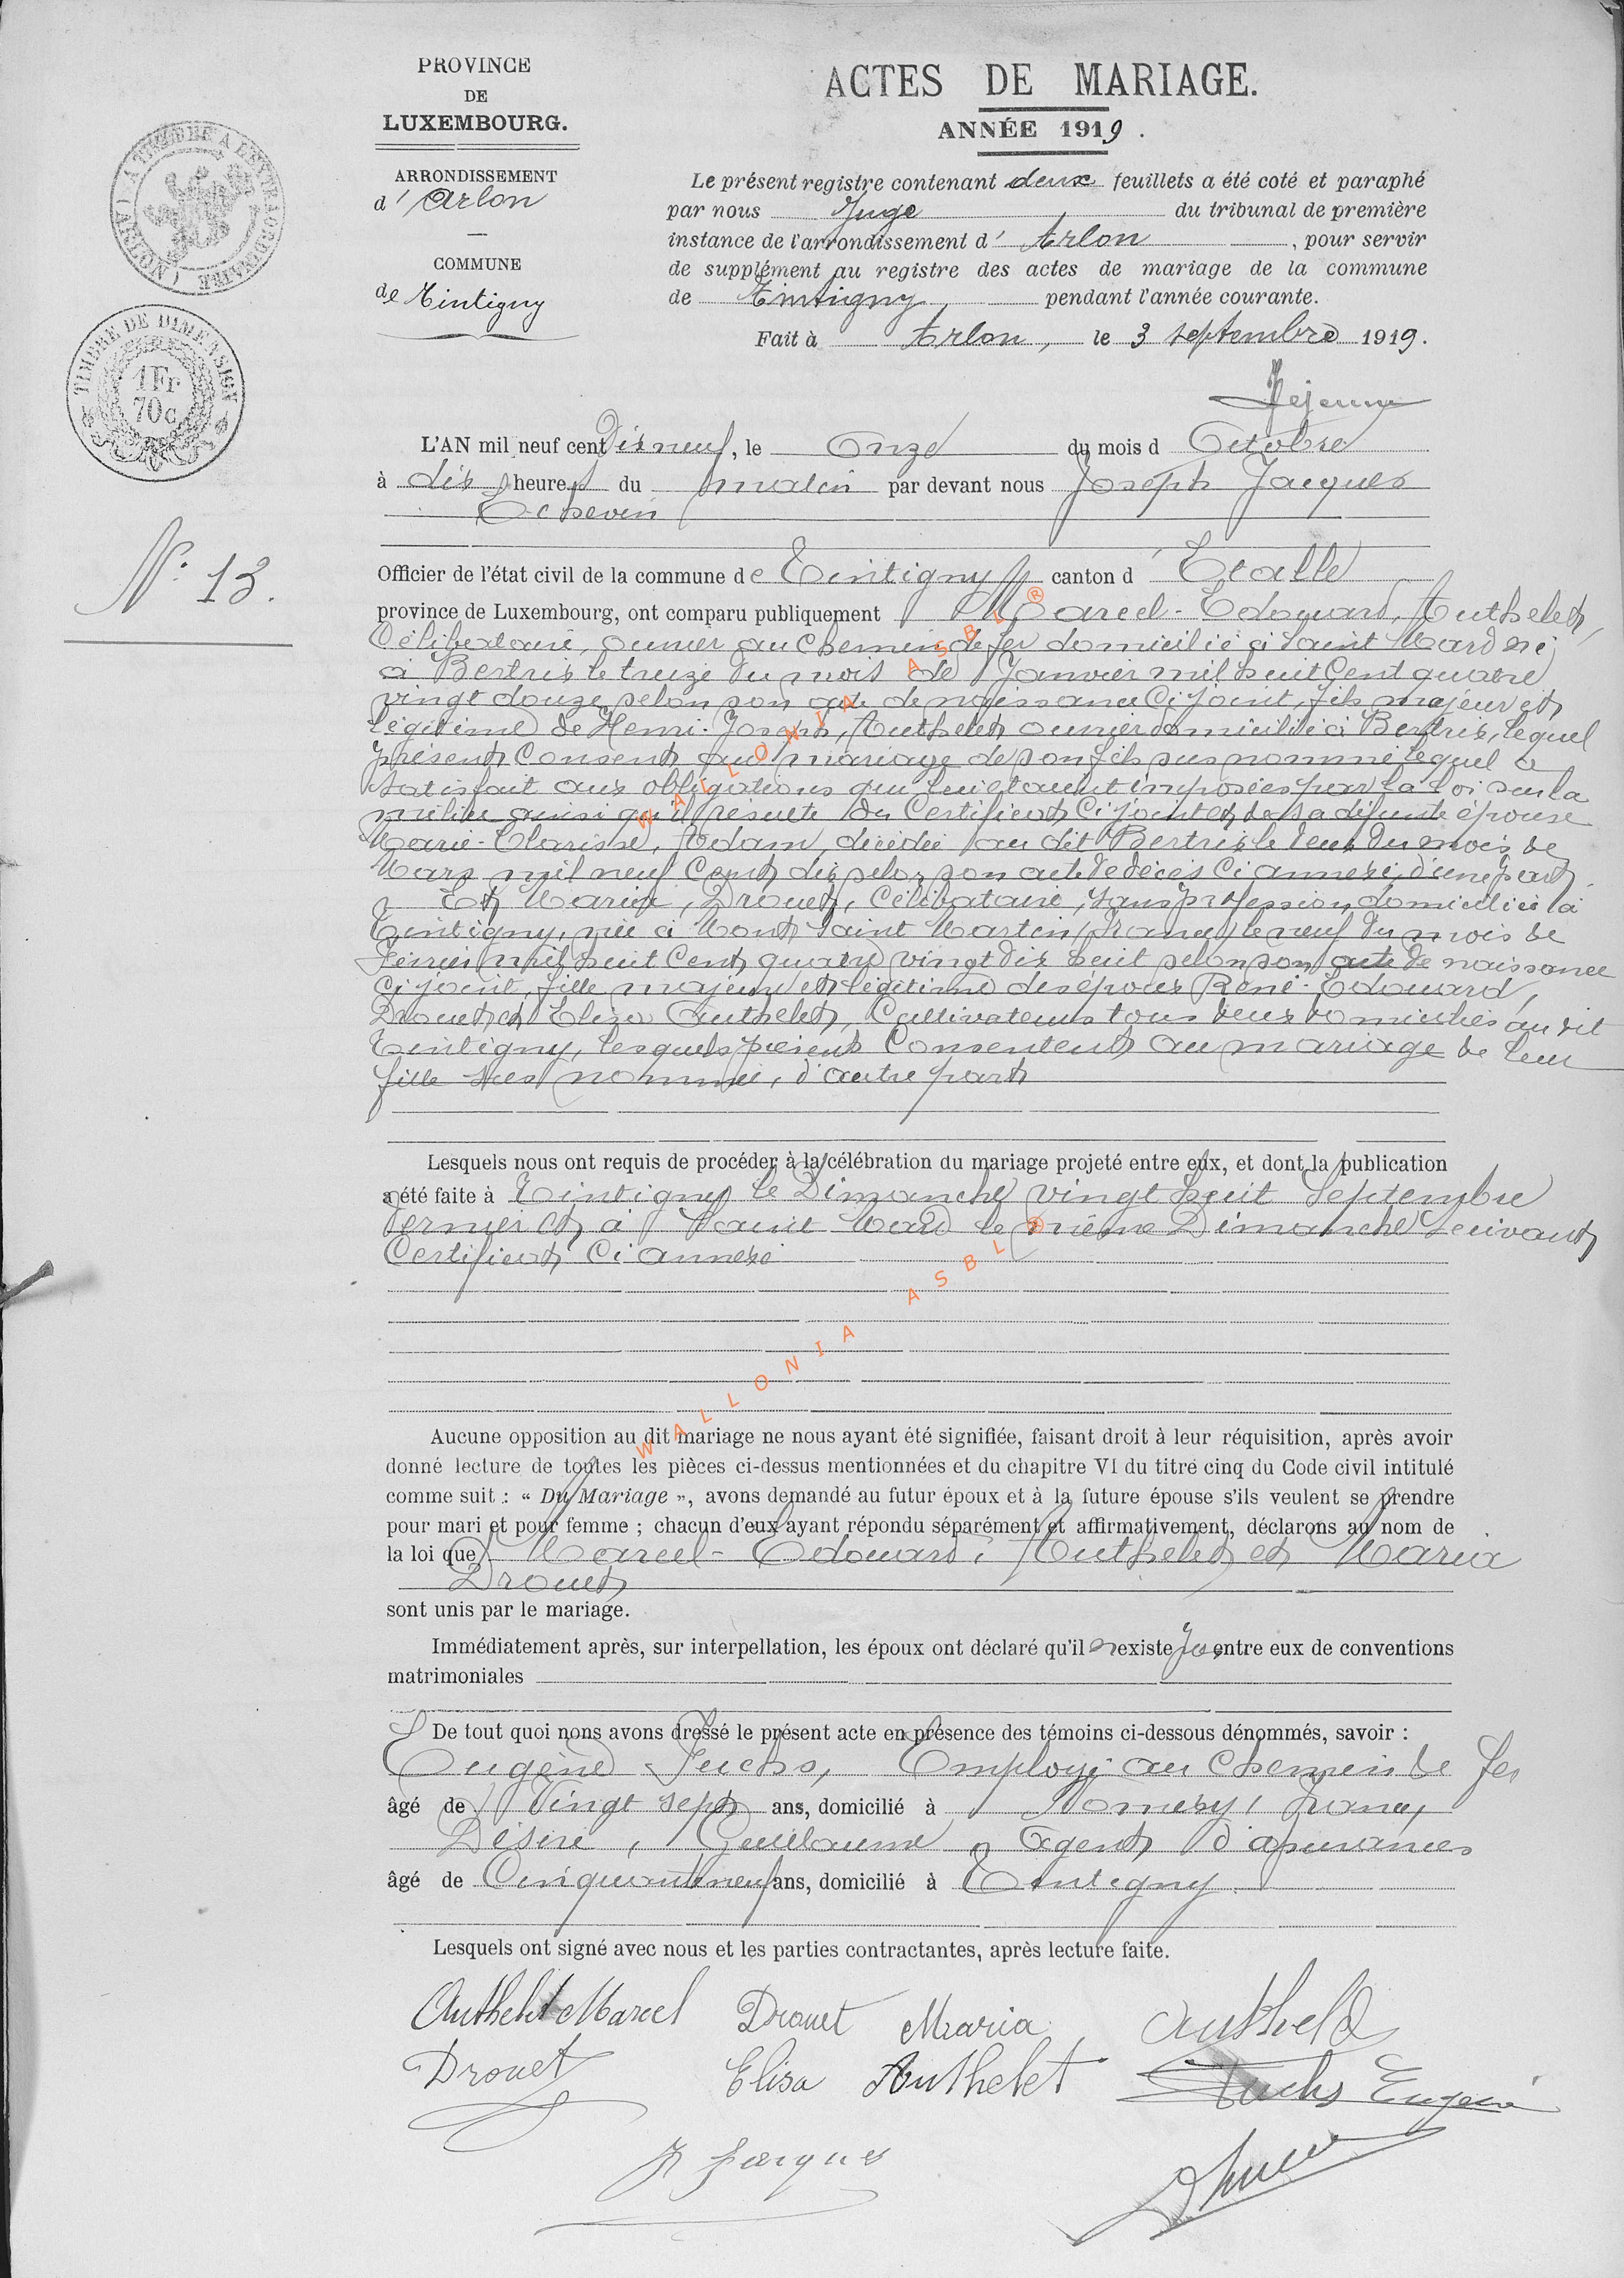 PROVINCE
DE
LUXEMBOURG.
ARRONDISSEMENT
d' Arlon
COMMUNE
de Tintigny
ACTES DE MARIAGE.
ANNÉE 1919.
Le présent registre contenant deux feuillets a été coté et paraphé
par nous Juge du tribunal de première
instance de l'arrondissement d' Arlon, pour servir
de supplément au registre des actes de mariage de la commune
de Tintigny pendant l'année courante.
Fait à Arlon, le 3 septembre 1919.
TIMBRE DE DIMENSION
1 Fr
70c
L'AN mil neuf cent Dix neuf, le Onze du mois d Octobre
à dix heures du matin par devant nous Joseph Jacques
Echevin
N° 13.
Officier de l'état civil de la commune de Tintigny canton d' Etalle
province de Luxembourg, ont comparu publiquement Marcel-Edouard, Authelet,
Célibataire, ouvrier au chemin de fer domicilié à Saint Mard né
à Bertrix le treize du mois de Janvier mil huit Cent quatre
vingt douze selon son acte de naissance Ci joint, fils majeur et
légitime de Henri-Joseph, Authelet ouvrier domicilié à Bertrix, lequel
présent Consent au mariage de son fils sus nommé lequel a
satisfait aux obligations qui lui étaient imposées par la loi sur la
milice ainsi qu'il résulte du Certificat Ci joint et de sa défunte épouse
Marie-Clarisse, Adam, décédée au dit Bertrix le deux du mois de
Mars mil neuf Cent dix selon son acte de décès Ci annexé, d'une part.
Et Maria, Drouet, Célibataire, sans profession, domiciliée à
Tintigny, née à Mont Saint Martin (France) le neuf du mois de
Février mil huit Cent quatre vingt dix huit selon son acte de naissance
Ci joint, fille majeure et légitime des époux René-Edouard,
Drouet et Elisa Authelet, Cultivateurs tous deux domiciliés au dit
Tintigny, lesquels présents Consentent au mariage de leur
fille sus nommée, d'autre part
Lesquels nous ont requis de procéder à la célébration du mariage projeté entre eux, et dont la publication
a été faite à Tintigny le Dimanche vingt huit Septembre
dernier et à Saint Mard le même Dimanche suivant
Certificat Ci annexé
Aucune opposition au dit mariage ne nous ayant été signifiée, faisant droit à leur réquisition, après avoir
donné lecture de toutes les pièces ci-dessus mentionnées et du chapitre VI du titre cinq du Code civil intitulé
comme suit : « Du Mariage », avons demandé au futur époux et à la future épouse s'ils veulent se prendre
pour mari et pour femme ; chacun d'eux ayant répondu séparément et affirmativement, déclarons au nom de
la loi que Marcel-Edouard, Authelet et Maria
Drouet
sont unis par le mariage.
Immédiatement après, sur interpellation, les époux ont déclaré qu'il n'existe pas entre eux de conventions
matrimoniales
De tout quoi nons avons dressé le présent acte en présence des témoins ci-dessous dénommés, savoir :
Eugène Fuchs, Employé au Chemin de fer
âgé de Vingt sept ans, domicilié à France,
Désiré, Guillaume, Agent d'assurances
âgé de Cinquante neuf ans, domicilié à Tintigny.
Lesquels ont signé avec nous et les parties contractantes, après lecture faite.
Authelet Marcel Drouet Maria Authelet
Drouet Elisa Authelet Fuchs Eugène
J Jacques
WALLONIA ASBL ®
WALLONIA ASBL ®